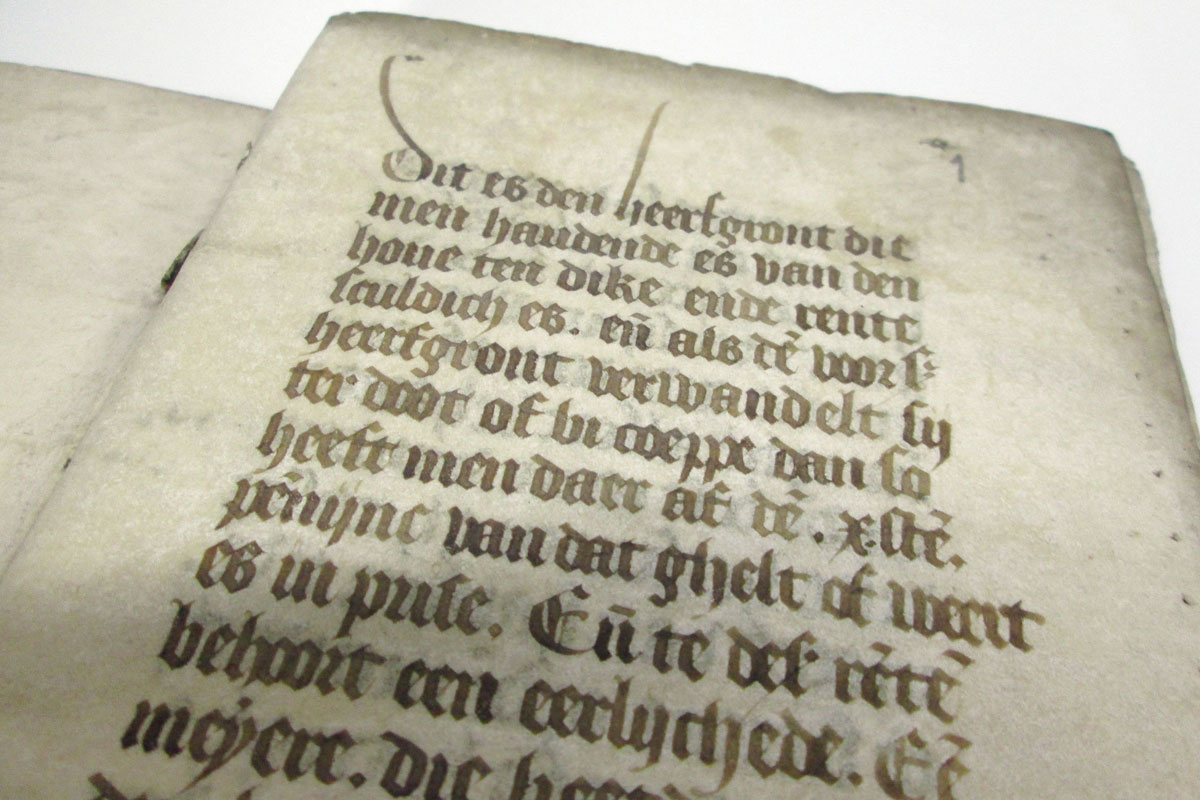 1
Dit es den heerfgront die
men haudende es van den
houe ten dike ende rente
sculdich es. eñ als dē voors
heerfgront verwandelt sij
ter doot of bi coeppe dan so
heeft men daer af dē . x.stē.
pēnijnc van dat ghelt of weert
es in prise. Eñ te des rētē
behoort een eerlijchede. Eē
meyere. die heef